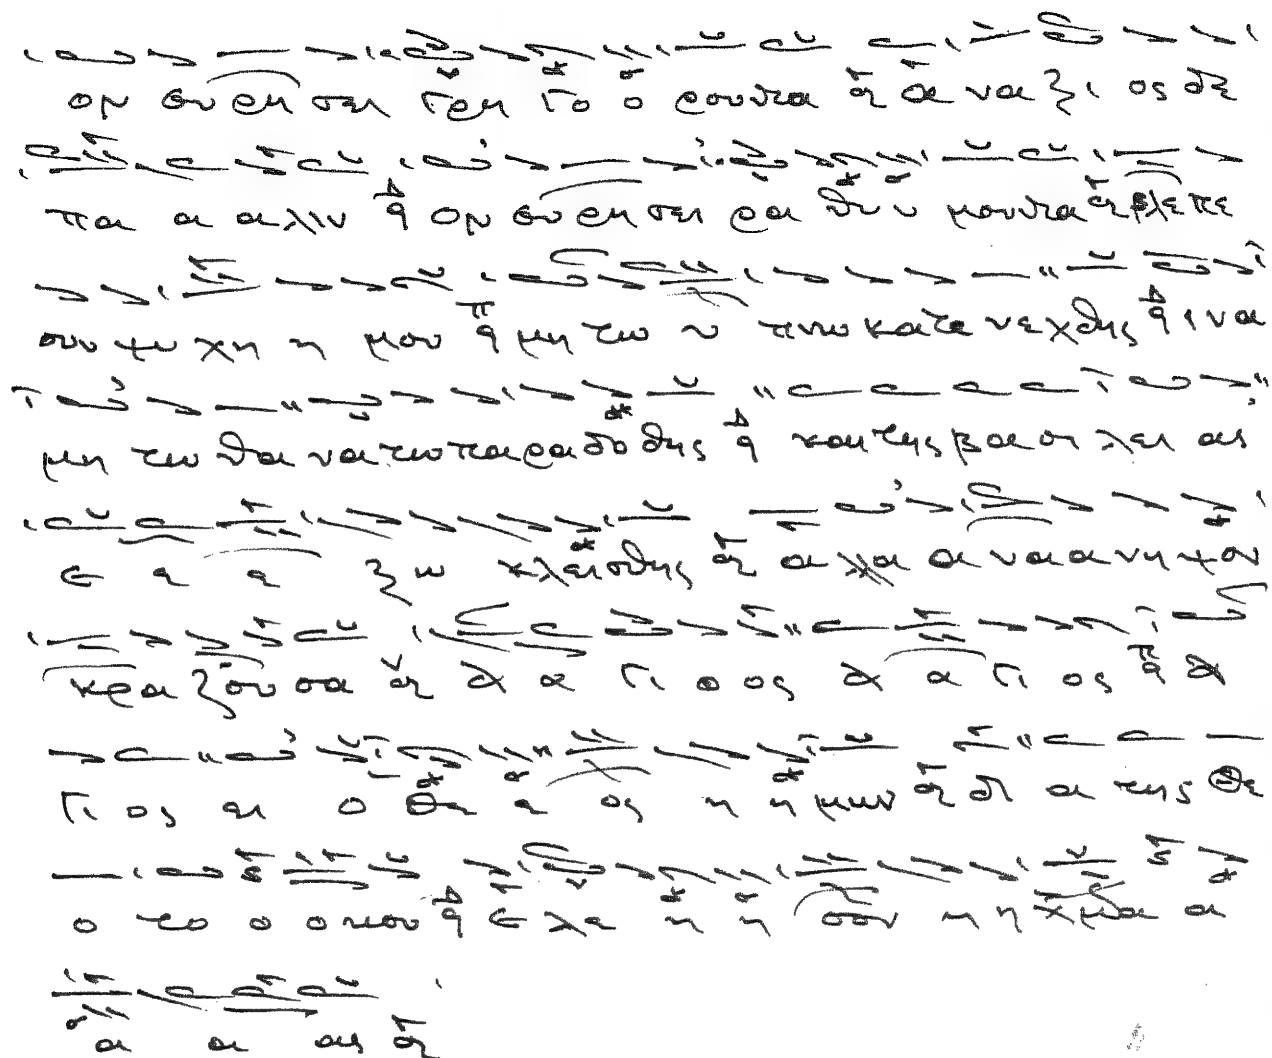 ον ευ ρη σει γρη γο ο ρουντα α να ξι ος δε
πα α α λιν ον ευ ρη σει ρα θυ υ μουντα βλε πε
ουν ψυ χη η μου μη τω υ πνω κατε νε χθης ι να
μη τω θα να τω πα ρα δο θης και της βα σι λει ας
ε ε ε ξω κλει σθης α λλα α να α νη ψον
κρα ζου σα α α γι ο ος α α γι ος α
γι ος ει ο Θε ε ος η η μων δι α της Θε
ο το ο ο κου ε λε η η σον η η μα α
α α ας